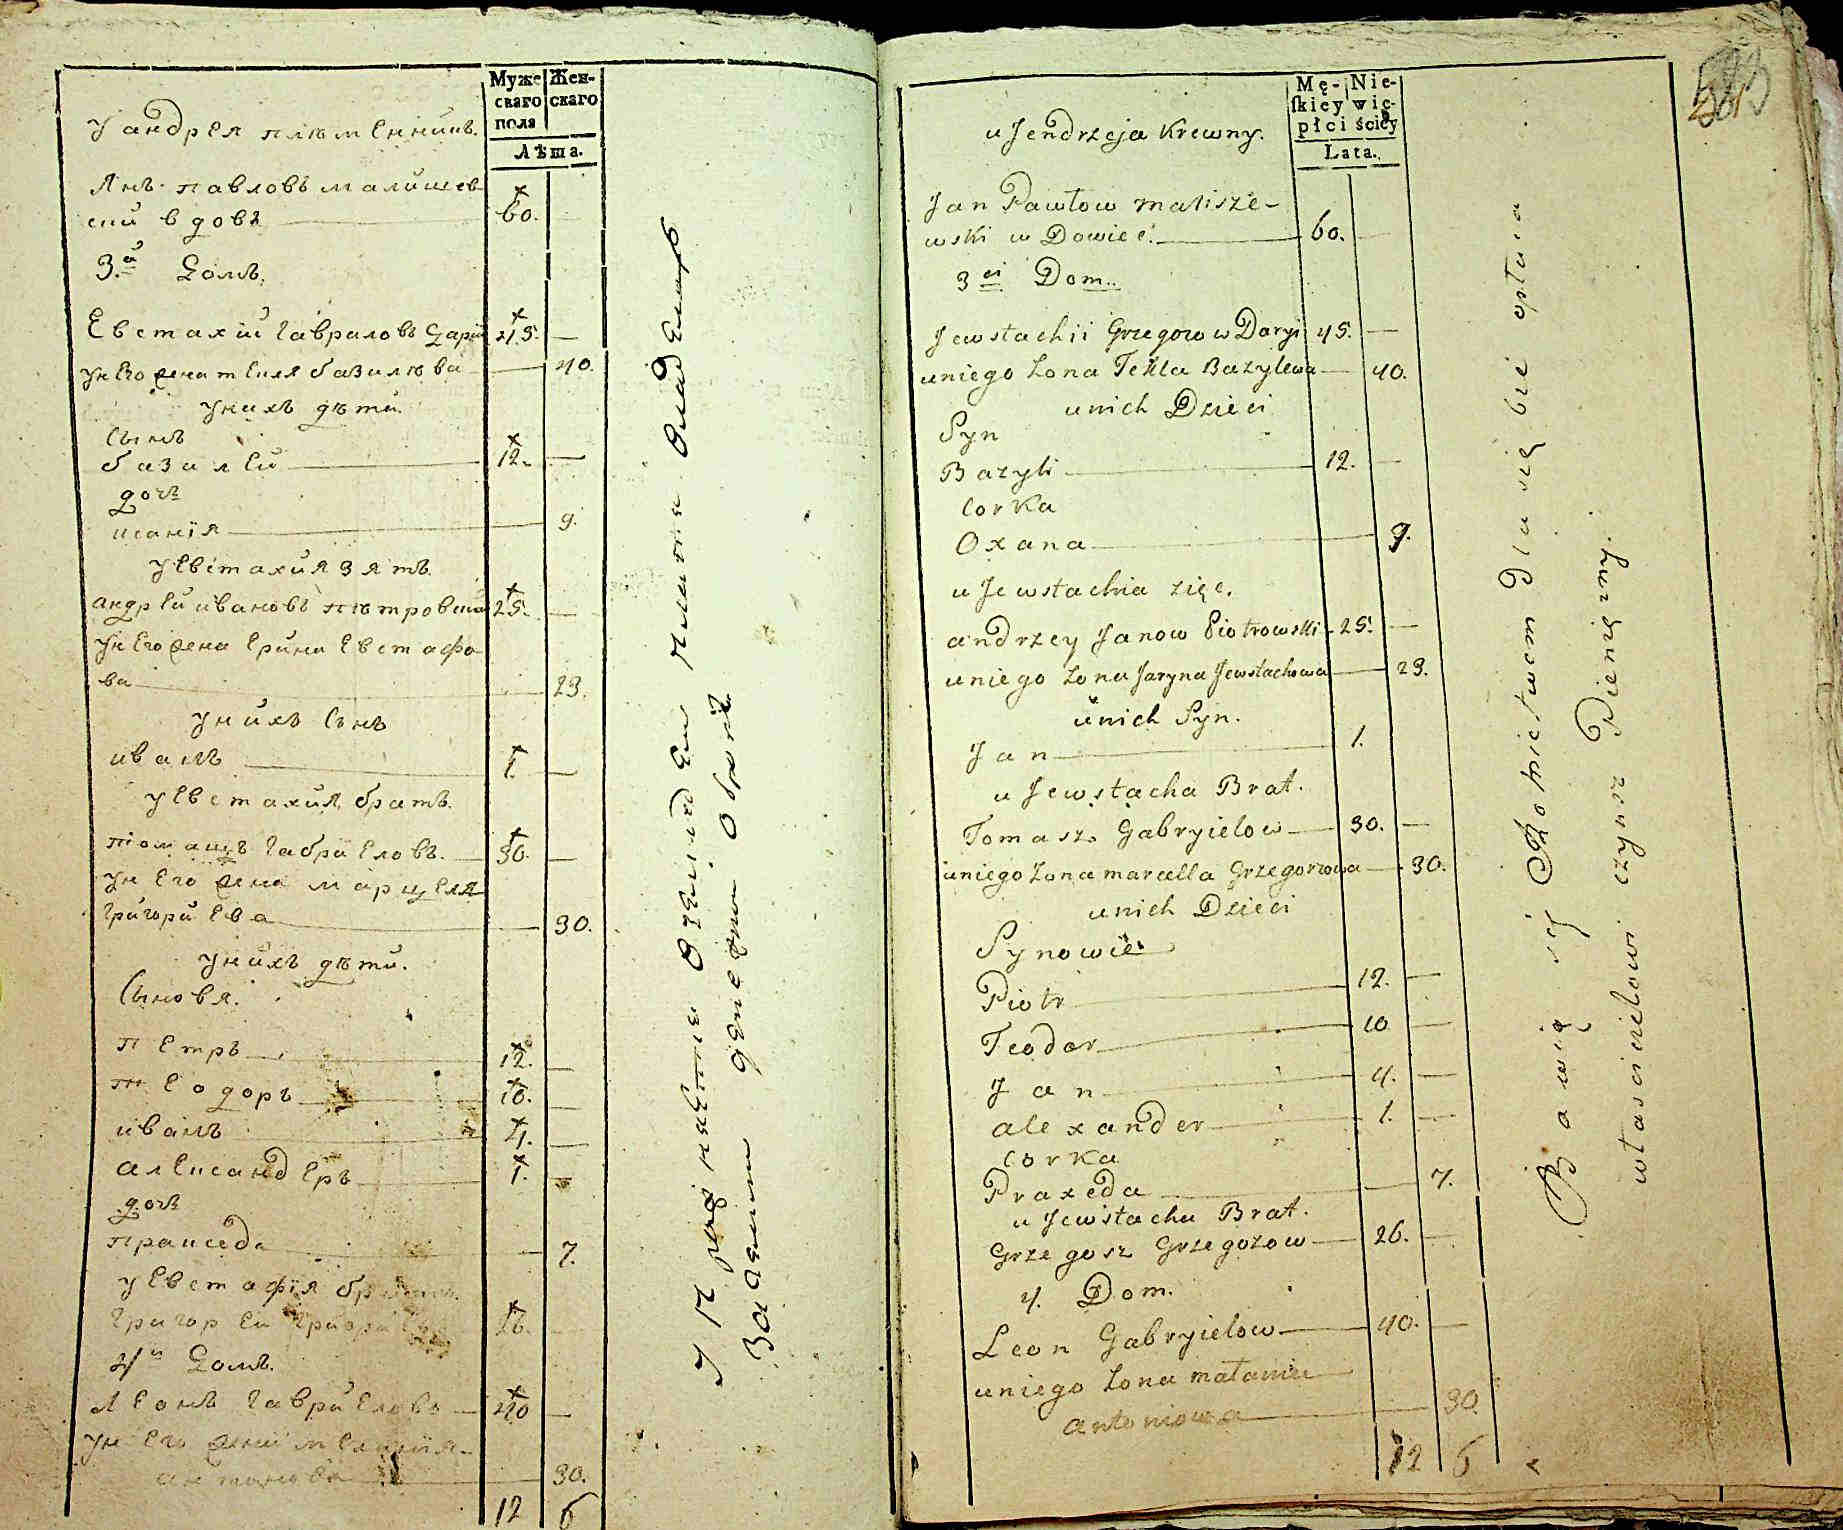 Муже Жен-
скаго скаго
пола
Лѣта.
у андрея плѣменникъ.
Янъ павловъ малишев
ски вдовъ 60.
3.й Домъ.
Евстахий Гавриловъ Дари 45.
у него жена текля базилева 40.
у нихъ дѣти.
Сынъ
базилей 12.
дочь
ксанія 9.
у Евстахия зять.
андрей ивановъ пѣтровский 25.
у него жена Ерина Евстафо
ва 23.
у нихъ Сынъ
иванъ 1.
у Евстахия братъ.
томашъ габрйеловъ. 30.
у него жена марцеля
григорйева 30.
у нихъ дѣти.
Сыновя.
петръ 12.
теодоръ 10.
иванъ 4.
александеръ 1.
дочь
пракседа 7.
у Евстафія братъ
григорей 26.
4й Домъ.
Леонъ гаврйеловъ 40
у него жена мелания
антонова 30.
12 6
Mę- Nie-
ſkiey wię-
płci ściey
Lata.
u Jendrzeja Krewny.
Jan Pawłow malisze-
wski w Dowiec. 60.
3ci Dom.
Jewstachii Grzegorow Daryi 45.
uniego żona Tekla Bazylewa 40.
unich Dzieci
Syn
Bazyli 12.
Corka
Oxana 9.
u Jewstachia zięc.
andrzey Janow Piotrowski 25.
uniego żona Jaryna Jewstachowa 23.
unich Syn.
Jan 1.
u Jewstacha Brat.
Tomasz Gabryielow 30.
uniego żona marcella Grzegorzowa 30.
unich Dzieci
Synowie
Piotr 12.
Teodor 10
Jan 4.
alexander 1.
Corka
Praxeda 7.
u Jewstacha Brat.
Grzegosz Grzegozow 26.
4. Dom.
Leon Gabryielow 40.
uniego żona matania
antoniowa 30.
12 6
Bawią się Rolnictwem Dla siębie opłaca
włascicielowi czynsz Pieniężny.